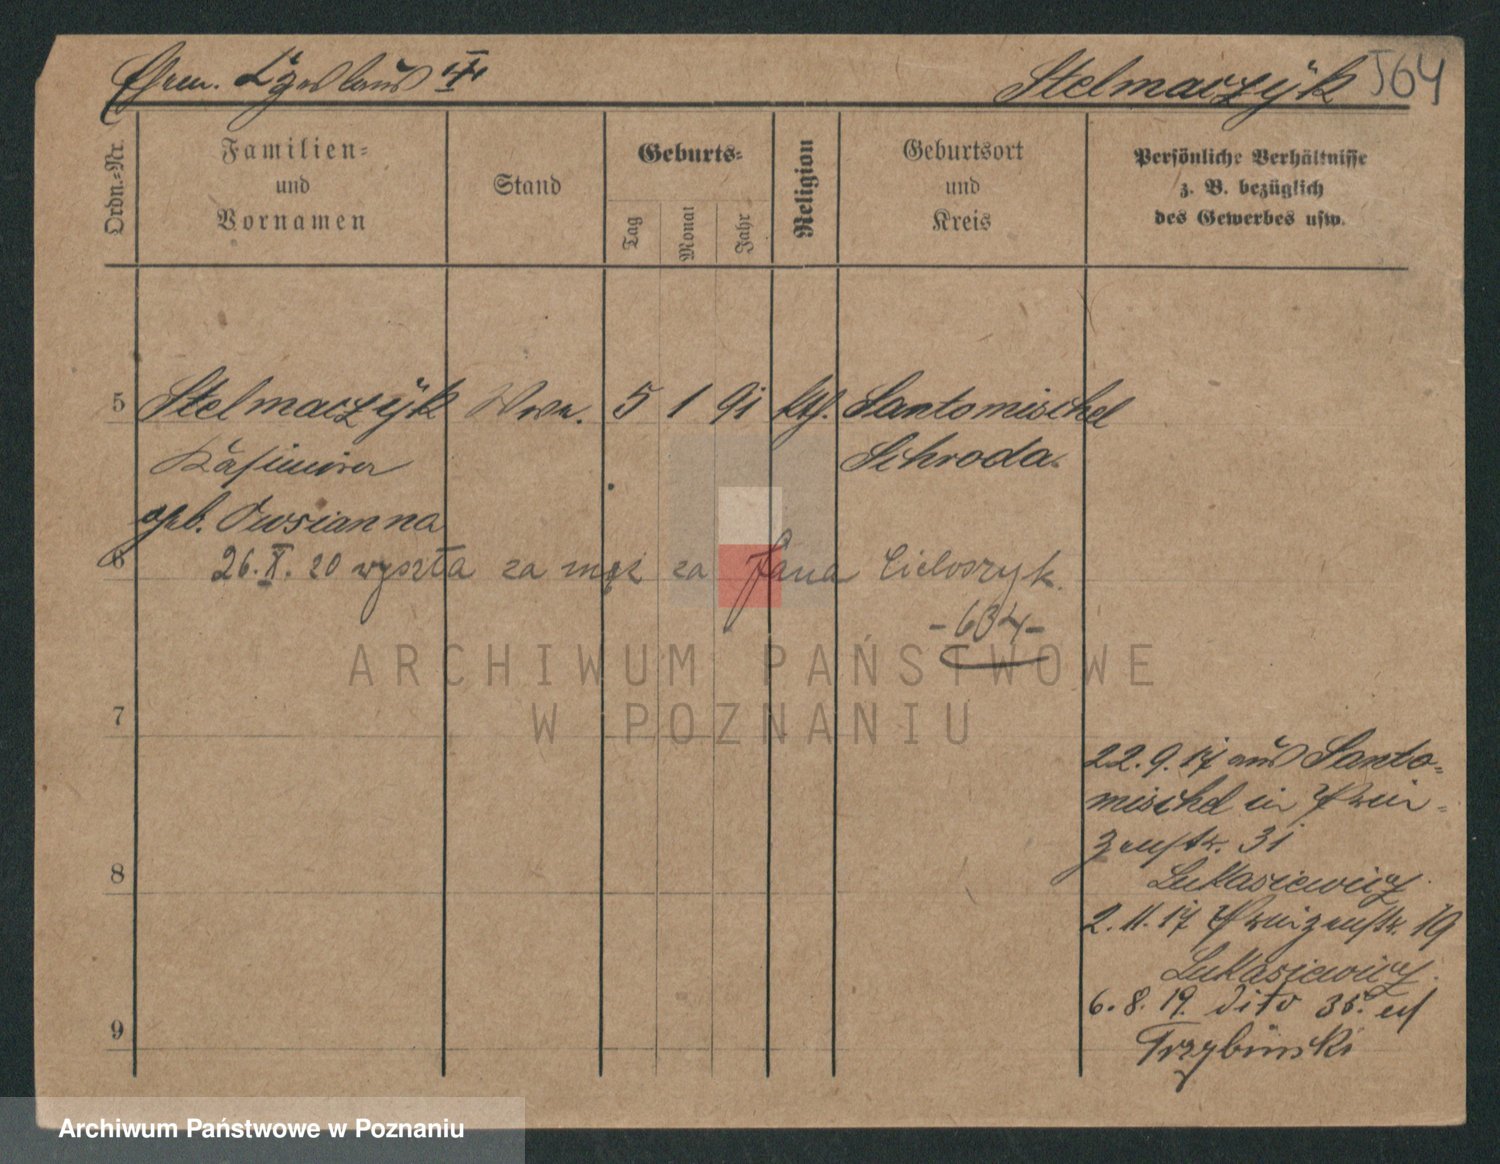 Stelmaczÿk 564
Ordn.=Nr.
Familien=
und
Vornamen
Stand
Geburts=
Tag
Monat
Jahr
Religion
Geburtsort
und
Kreis
Persönliche Verhältnisse
z. B. bezüglich
des Gewerbes usw.
5 Stelmaczÿk Wwe. 5 1 91 kth. Santomischel
Kasimira Schroda
geb. Owsianna
6
26. X. 20 wyszła za mąż za Jana Cieloszyk.
- 634 -
ARCHIWUM PAŃSTWOWE
W POZNANIU
7
22.9.17 aus Santo=
mischel in Prin=
zenstr. 31
Lukasiewicz
8
2.11.17 Prinzenstr. 19
Lukasiewicz
6.8.19. dito 35.
Trzybinski
9
Archiwum Państwowe w Poznaniu